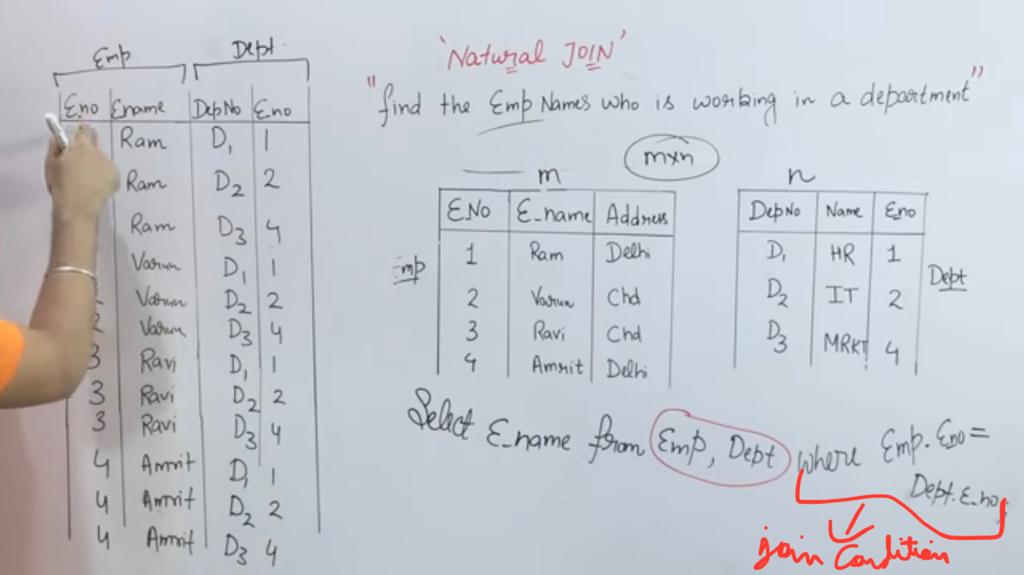 Emp Dept.
Eno Ename DepNo Eno
Ram D1 1
Ram D2 2
Ram D3 4
Varun D1 1
Varun D2 2
2 Varun D3 4
3 Ravi D1 1
3 Ravi D2 2
3 Ravi D3 4
4 Amrit D1 1
4 Amrit D2 2
4 Amrit D3 4
'Natural JOIN'
"find the Emp Names who is working in a department"
mxn
m
E.No E_name Address
1 Ram Delhi
2 Varun Chd
3 Ravi Chd
4 Amrit Delhi
Emp
n
DepNo Name Eno
D1 HR 1
D2 IT 2
D3 MRKT 4
Dept
Select E_name from Emp, Dept where Emp.Eno=
Dept.E_no
join Condition